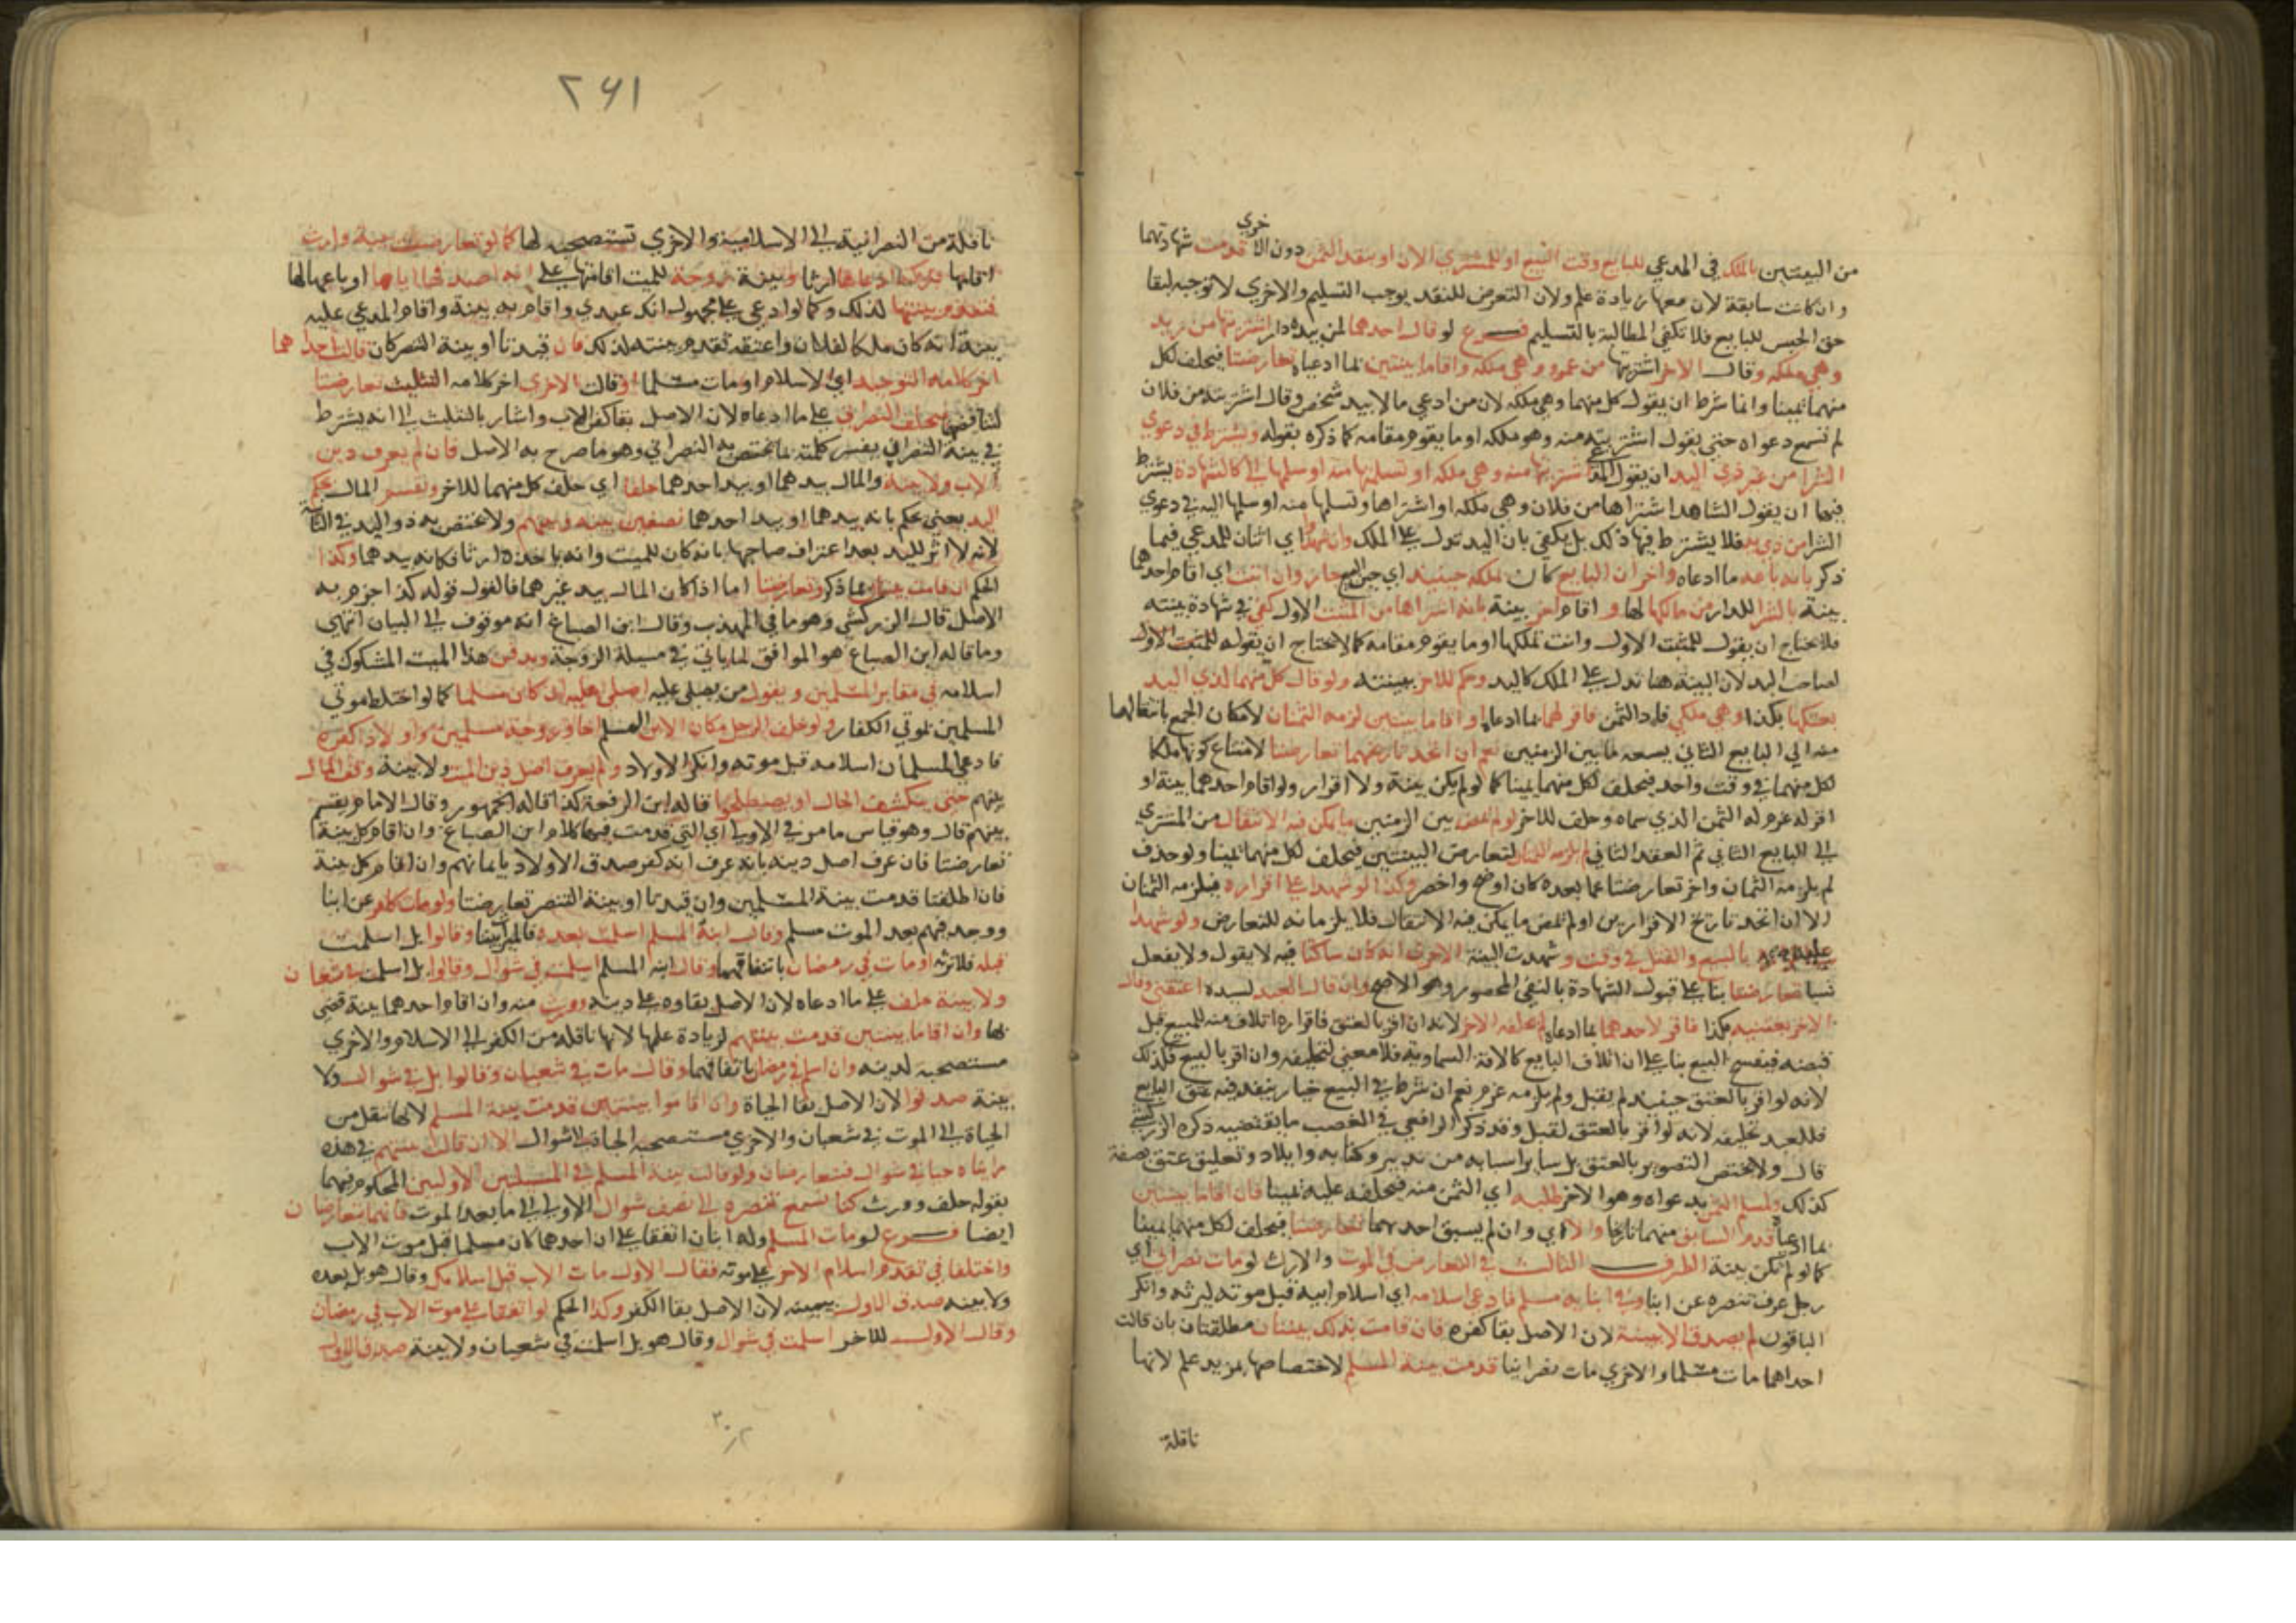 من البينتين بالملك في المدعي للبايع وقت البيع او للمشتري الان او بنقد الثمن دون الاخري قدمت شهادتهما
وان كانت سابقة لان معها زيادة علم ولان التعرض للنقد يوجب التسليم والاخري لا توجبه لبقا
حق الحبس للبايع فلا تكفي المطالبة بالتسليم فرع لو قال احدهما لمن بيده دار اشتريتها من زيد
وهي ملكه وقال الاخر اشتريتها من عمرو وهي ملكه واقاما بينتين بما ادعياه تعارضتا فيحلف لكل
منهما يمينا وانما شرط ان يقول كل منهما وهي ملكه لان من ادعي مالا بيد شخص وقال اشتريته من فلان
لم تسمع دعواه حتي يقول اشتريته منه وهو ملكه او ما يقوم مقامه كما ذكره بقوله ويشترط في دعوي
الشرا من غير ذي اليد ان يقول المدعي اشتريتها منه وهي ملكه او تسلمتها منه او سلمها الي كالشهادة يشترط
فيها ان يقول الشاهد اشتراها من فلان وهي ملكه او اشتراها وتسلمها منه او سلمها اليه في دعوي
الشرا من ذي يد فلا يشترط فيها ذلك بل يكفي بان اليد تدل علي الملك وان شهد اي اثنان للمدعي فيما
ذكر بانه باعه ما ادعاه واخران البايع كان ملكه حينيذ اي حين البيع جاز وان اثبت اي اقام احدهما
بينة بالشرا للدار من مالكها لها و اقام اخر بينة بانه اشتراها من المثبت الاول كفي في شهادة بينته
فلا يحتاج ان يقول للمثبت الاول وانت تملكها او ما يقوم مقامه كما لا يحتاج ان يقوله للمثبت الاول
لصاحب اليد لان البينة هنا تدل علي الملك كاليد وحكم للاخر ببينته ولو قال كل منهما لذي اليد
بعتكها بكذا وهي ملكي فاد الثمن فاقر لهما بما ادعياه او اقاما بينتين لزمه الثمنان لامكان الجمع بانتقالها
منه الي البايع الثاني يسعه ما بين الزمنين نعم ان اتحد تاريخهما تعارضتا لامتناع كونها ملكا
لكل منهما في وقت واحد فيحلف لكل منهما يمينا كما لو لم يكن بينة ولا اقرار ولو اقام احدهما بينة او
اقر له غرم له الثمن الذي سماه وحلف للاخر ولو لم يمض بين الزمنين ما يمكن فيه الانتقال من المشتري
الي البايع الثاني ثم العقد الثاني لم يلزمه الثمنان لتعارض البينتين فيحلف لكل منهما يمينا ولو حذف
لم يلزمه الثمنان واخر تعارضتا عما بعده كان اوضح واخصر وكذا لو شهدا علي اقراره فيلزمه الثمنان
الا ان اتحد تاريخ الاقرارين او لم يمض ما يمكن فيه الانتقال فلا يلزمانه للتعارض ولو شهدا
بالبيع والقتل في وقت وشهدت البينة الاخري انه كان ساكنا فيه لا يقول ولا يفعل
شيا تعارضتا بنا علي قبول الشهادة بالنفي المحصور وهو الاصح وان قال العبد لسيده اعتقتني وقال
الاخر بعتنيه بكذا فاقر لاحدهما بما ادعاه لم يحلف الاخر لانه ان اقر بالعتق فاقراره اتلاف منه للمبيع قبل
قبضه فينفسخ البيع بنا علي ان اتلاف البايع كالافة السماوية فلا معني لتحليفه وان اقر بالبيع فكذلك
لانه لو اقر بالعتق حينيذ لم يقبل ولم يلزمه غرم نعم ان شرط في البيع خيار ينفذ فيه عتق البايع
فللعبد تحليفه لانه لو اقر بالعتق لقبل وقد ذكر الرافعي في الغصب ما يقتضيه ذكره الزركشي
قال ولا يختص التصوير بالعتق بل ساير اسبابه من تدبير وكتابه وايلاد وتعليق عتق بصفة
كذلك ولمسلم الثمن بدعواه وهو الاخر طلبه اي الثمن منه فيحلفه عليه يمينا فان اقاما بينتين
بما ادعياه قدم السابق منهما تاريخا والا اي وان لم يسبق احدهما تعارضتا فيحلف لكل منهما يمينا
كما لو لم تكن بينة الطرف الثالث في التعارض في الموت والارث لو مات نصراني اي
رجل عرف تنصره عن ابنا وفي ابنايه مسلم فادعي اسلامه اي اسلام ابيه قبل موته ليرثه وانكر
الباقون لم يصدق الا ببينة لان الاصل بقا كفره فان قامت بذلك بينتان مطلقتان بان قالت
احداهما مات مسلما والاخري مات نصرانيا قدمت بينة المسلم لاختصاصها بمزيد علم لانها
ناقلة
٢٦١
ناقلة من النصرانية الي الاسلامية والاخري تستصحبه لها كما لو تعارضت بينة وارث
اقامها بتركة ادعاها ارثا وبينة زوجة للميت اقامتها علي انه اصدقها اياها او باعها لها
فتقدم بينتها لذلك وكما لو ادعي علي مجهول انك عبدي واقام به بينة واقام المدعي عليه
بينة انه كان ملكا لفلان واعتقه تقدم بينته لذلك فان قيدتا او بينة النصر كان قالت احداهما
اخر كلامه التوحيد اي الاسلام او مات مسلما وقالت الاخري اخر كلامه التثليث تعارضتا
لتناقضهما فيحلف النصراني علي ما ادعاه لان الاصل بقا كفر الاب واشار بالتثليث الي انه يشترط
في بينة النصراني يفسر كلمته بما يختص به النصراني وهو ما صرح به الاصل فان لم يعرف دين
الاب ولا بينة والمال بيدهما او بيد احدهما حلفا اي حلف كل منهما للاخر ويقسم المال بحكم
اليد يعني يحكم بانه بيدهما او بيد احدهما نصفين بينه وبينهم ولا يختص به ذو اليد في الثانية
لانه لا اثر لليد بعد اعتراف صاحبها بانه كان للميت وانه ياخذه ارثا فكانه بيدهما وكذا
الحكم ان قامت بينتان بما ذكر وتعارضتا اما اذا كان المال بيد غيرهما فالقول قوله كذا جزم به
الاصل قال الزركشي وهو ما في المهذب وقال ابن الصباغ انه موقوف الي البيان انتهي
وما قاله ابن الصباغ هو الموافق لما ياتي في مسيلة الزوجة ويدفن هذا الميت المشكوك في
اسلامه في مقابر المسلمين ويقول من يصلي عليه اصلي عليه ان كان مسلما كما لو اختلط موتي
المسلمين بموتي الكفار ولو خلف الرجل مكان الابن المسلم اخا وزوجة مسلمين واولادا كفرة
فادعي المسلمان اسلامه قبل موته وانكر الاولاد ولم يعرف اصل دين الميت ولا بينة وقف المال
بينهم حتي ينكشف الحال او يصطلحوا قاله ابن الرفعة كذا قاله الجمهور وقال الامام يقسم
بينهم قال وهو قياس ما مر في الاولي اي التي قدمت فيها كلام ابن الصباغ وان اقام كل بينة
تعارضتا فان عرف اصل دينه بانه عرف انه كفر صدق الاولاد بايمانهم وان اقام كل بينة
فان اطلقتا قدمت بينة المسلمين وان قيدتا او بينة التنصر تعارضتا ولو مات كافر عن ابنا
ووجد فيهم بعد الموت مسلم وقال ابنه المسلم اسلمت بعده فالميراث بيننا وقالوا بل اسلمت
قبله فلا ترثه او مات في رمضان باتفاقهما وقال ابنه المسلم اسلمت في شوال وقالوا بل اسلمت في شعبان
ولا بينة حلف علي ما ادعاه لان الاصل بقاوه علي دينه وورث منه وان اقام احدهما بينة قضي
بها وان اقاما بينتين قدمت بينتهم لزيادة علمها لانها ناقلة من الكفر الي الاسلام والاخري
مستصحبة لدينه وان اسلم في رمضان باتفاقهما وقال مات في شعبان وقالوا بل في شوال ولا
بينة صدقوا لان الاصل بقا الحياة وان اقاموا بينتين قدمت بينة المسلم لانها تنقل من
الحياة الي الموت في شعبان والاخري مستصحبه الحياة الي شوال الا ان قالت بينتهم في هذه
رايناه حيا في شوال فتتعارضان ولو قالت بينة المسلم في المسيلتين الاوليين المحكوم فيهما
بقوله حلف وورث كنا نسمع تنصره الي نصف شوال الاولي الي ما بعد الموت فانهما يتعارضان
ايضا فرع لو مات المسلم وله ابنان اتفقا علي ان احدهما كان مسلما قبل موت الاب
واختلفا في تقدم اسلام الاخر علي موته فقال الاول مات الاب قبل اسلامك وقال هو بل بعده
ولا بينه صدق الاول بيمينه لان الاصل بقا الكفر وكذا الحكم لو اتفقا علي موت الاب في رمضان
وقال الاول للاخر اسلمت في شوال وقال هو بل اسلمت في شعبان ولا بينة صدق الاول